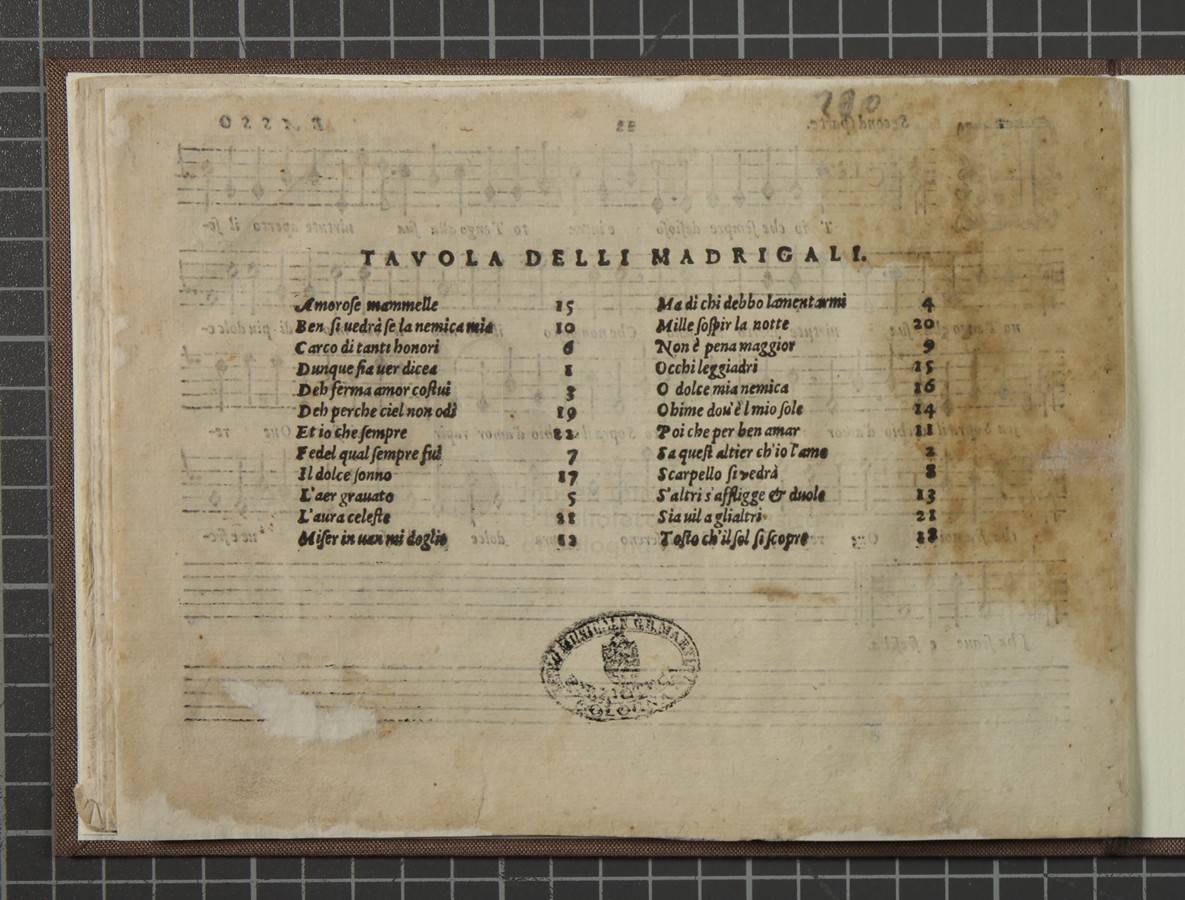 280
TAVOLA DELLI MADRIGALI.
Amorose mammelle 15
Ben si uedrà se la nemica mia 10
Carco di tanti honori 6
Dunque fia uer dicea 1
Deh ferma amor costui 3
Deh perche ciel non odi 19
Et io che sempre 22
Fedel qual sempre fui 7
Il dolce sonno 17
L'aer grauato 5
L'aura celeste
Miser in uan mi doglio 12
Ma di chi debbo lamentarmi 4
Mille sospir la notte 20
Non è pena maggior 9
Occhi leggiadri 15
O dolce mia nemica 16
Ohime dou'è'l mio sole 14
Poi che per ben amar 11
Sa quest altier ch'io l'amo 2
Scarpello si vedrà 8
S'altri s'affligge & duole 13
Sia uil a glialtri 21
Tosto ch'il sol si scopre 18
BOLOGNA